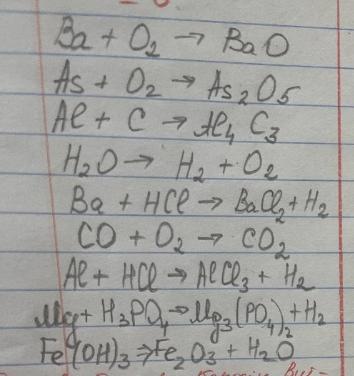 Ba + O₂ → BaO
As + O₂ → As₂O₅
Al + C → Al₄C₃
H₂O → H₂ + O₂
Ba + HCl → BaCl₂ + H₂
CO + O₂ → CO₂
Al + HCl → AlCl₃ + H₂
Mg + H₃PO₄ → Mg₃(PO₄)₂ + H₂
Fe(OH)₃ ⇒ Fe₂O₃ + H₂O